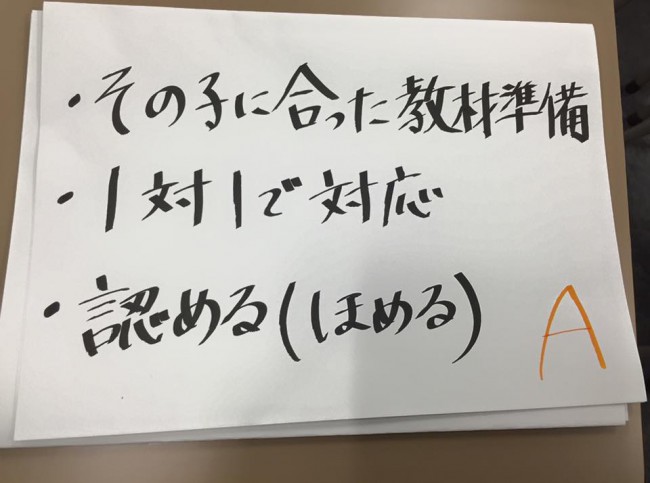 ・その子に合った教材準備
・1対1で対応
・認める(ほめる)
A